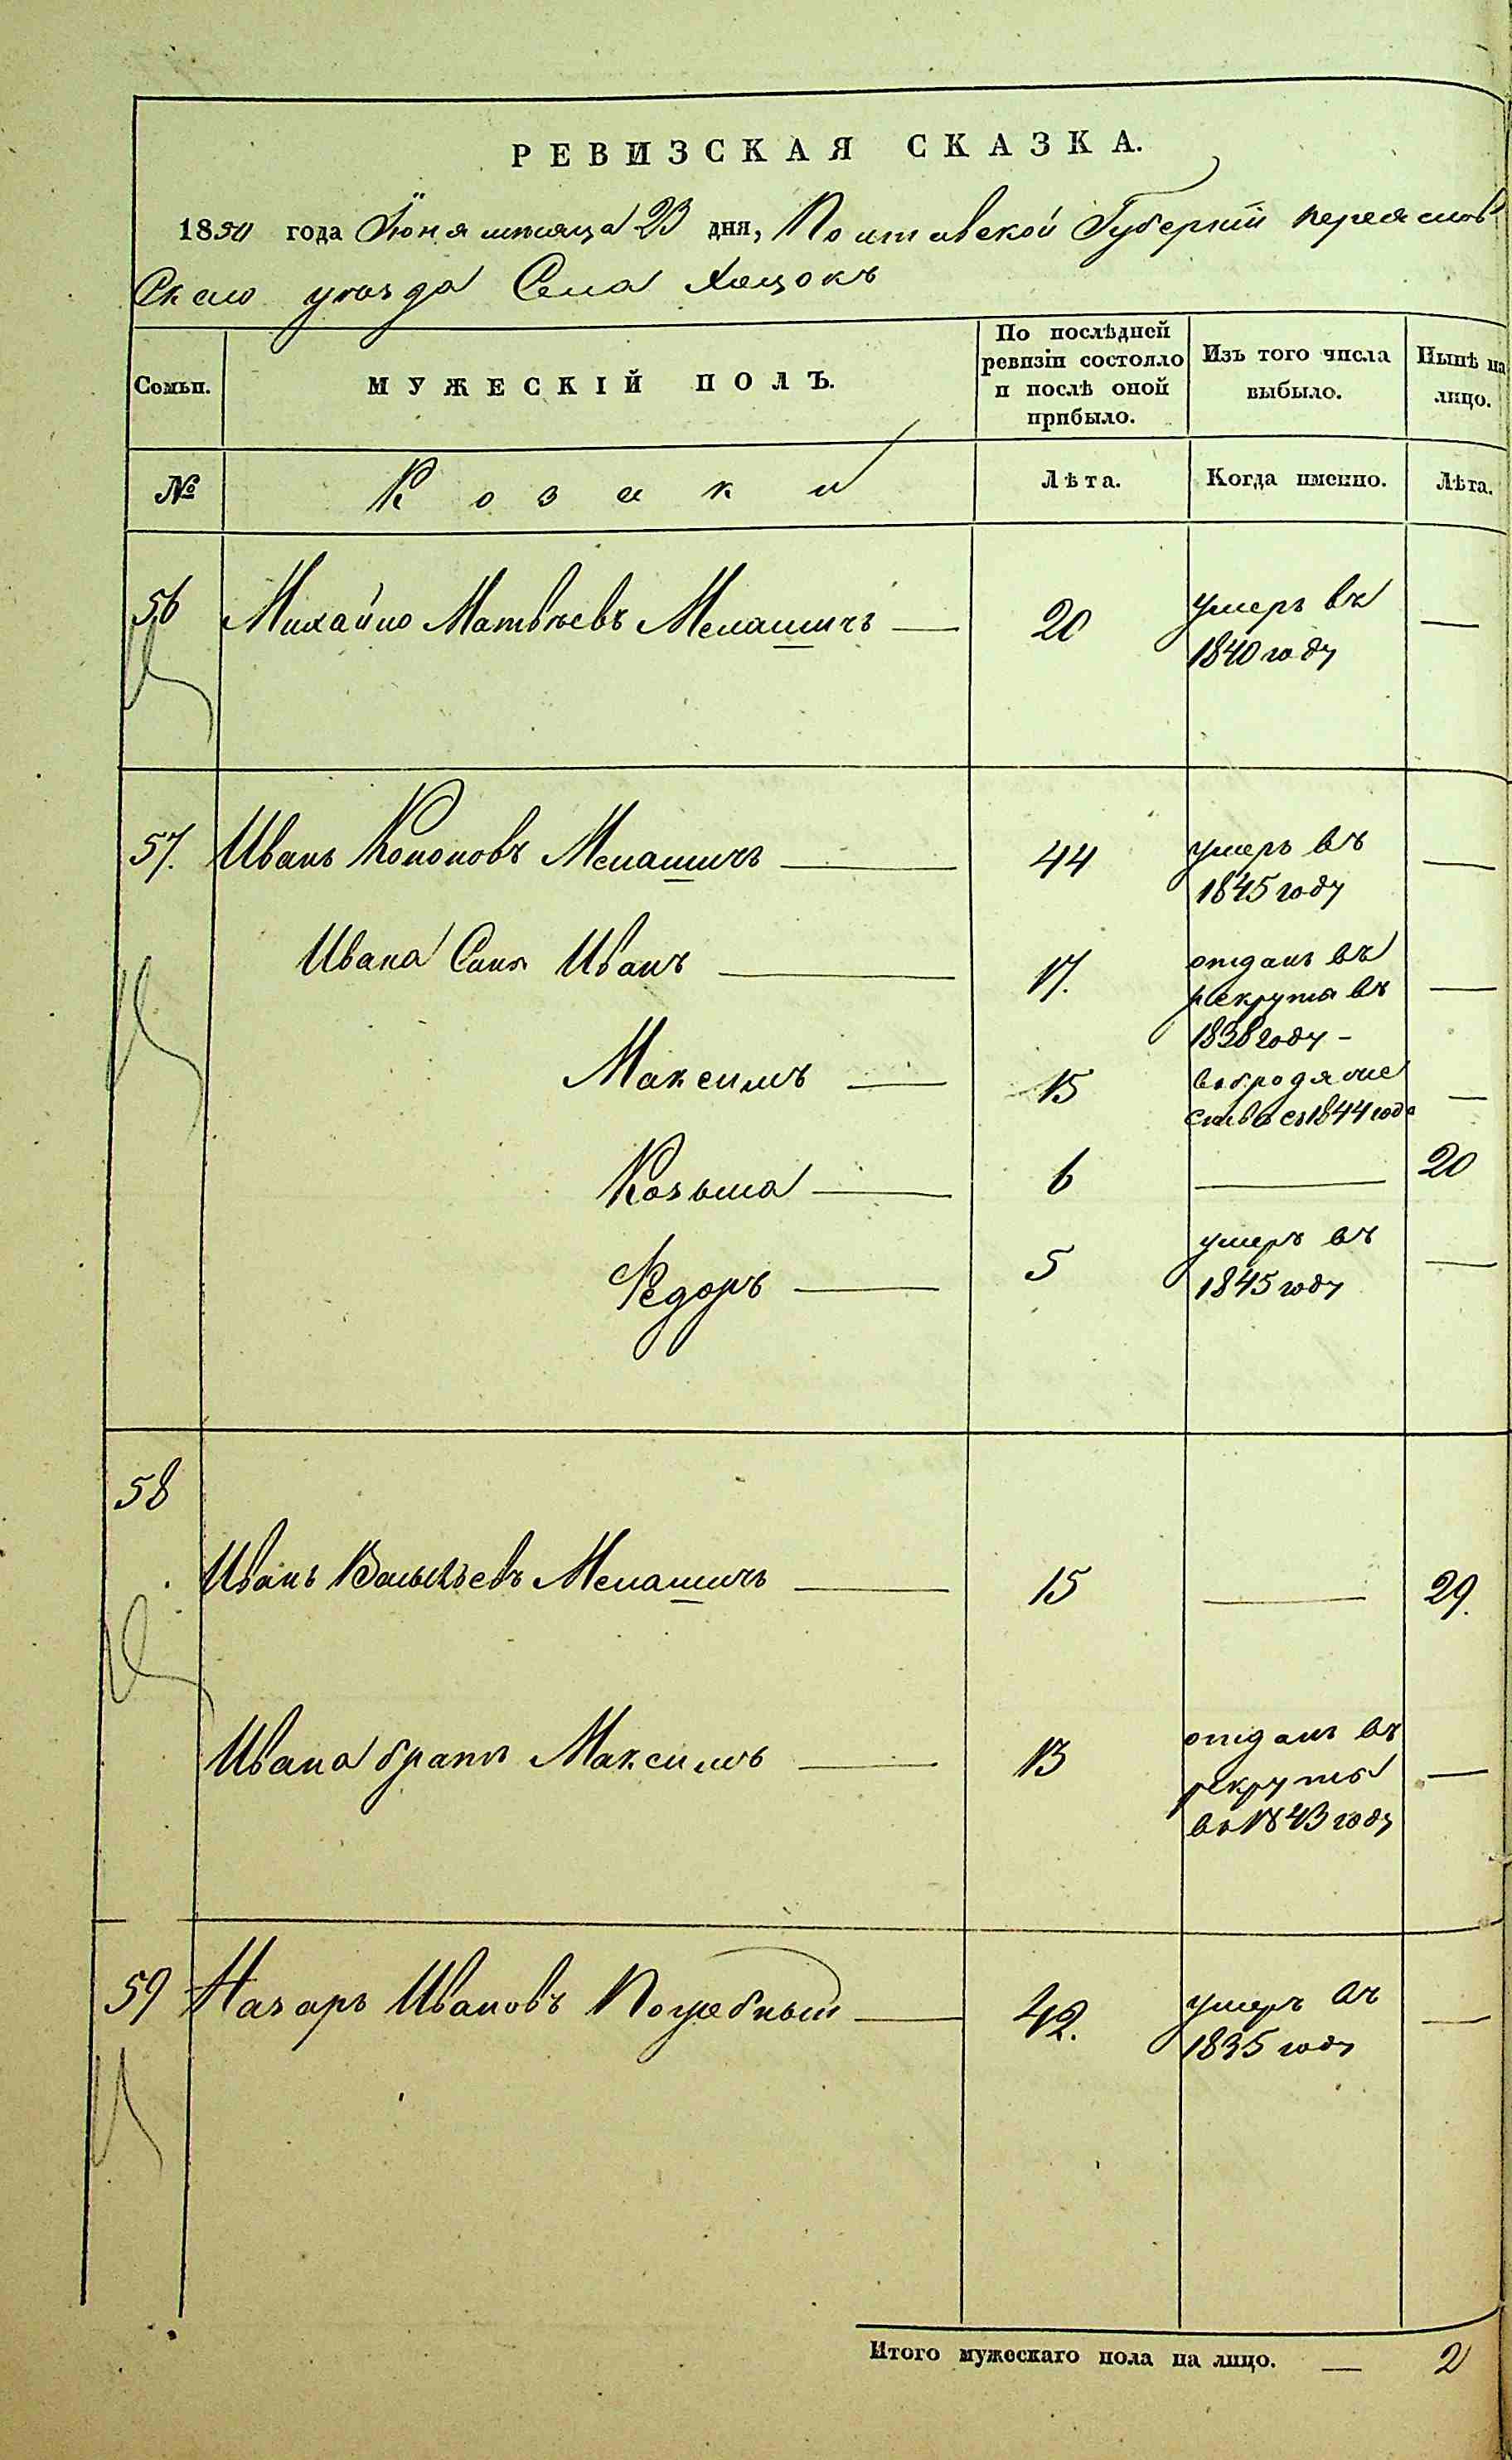 РЕВИЗСКАЯ СКАЗКА.
1850 года Іюня мѣсяца 23 дня, Полтавской Губерніи Переяслов
Скаго уѣзда Села Хоцокъ
Семьи.
МУЖЕСКІЙ ПОЛЪ.
По послѣдней ревизіи состояло и послѣ оной прибыло.
Изъ того числа выбыло.
Нынѣ на лицо.
№
Козаки
Лѣта.
Когда именно.
Лѣта.
56 Михайло Матвѣевъ 20 умеръ въ —
1840 году
57. Иванъ Кононовъ 44 умеръ въ —
1845 году
Ивана Сынъ Иванъ — 17. отданъ въ
рекруты въ —
1838 году –
Максимъ — 15 въ бродяже
ствѣ съ 1844 года —
Козьма — 6 — 20
Федоръ — 5 умеръ въ —
1845 году
58
Иванъ 15 — 29.
Ивана братъ Максимъ — 13 отданъ въ
рекруты —
въ 1843 году
59 Назаръ Ивановъ Погребный — 42. умеръ въ —
1835 году
Итого мужескаго пола на лицо. — 2